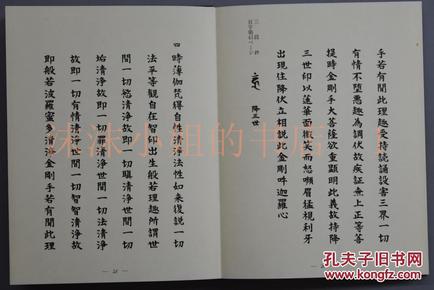 三段 鈔
手若有聞此理趣受持讀誦設害三界一切
有情不墮惡趣為調伏故疾證無上正等菩
提時金剛手大菩薩欲重顯明此義故持降
三世印以蓮華面微笑而怒顰眉猛視利牙
出現住降伏立相說此金剛吽迦羅心
降三世
四 時薄伽梵得自性清淨法性如來復說一切
法平等觀自在智印出生般若理趣所謂世
間一切慾清淨故即一切瞋清淨世間一切
垢清淨故即一切罪清淨世間一切法清淨
故即一切有情清淨世間一切智智清淨故
即般若波羅蜜多清淨金剛手若有聞此理
— 25 —
妹妹小姐的书店
孔夫子旧书网